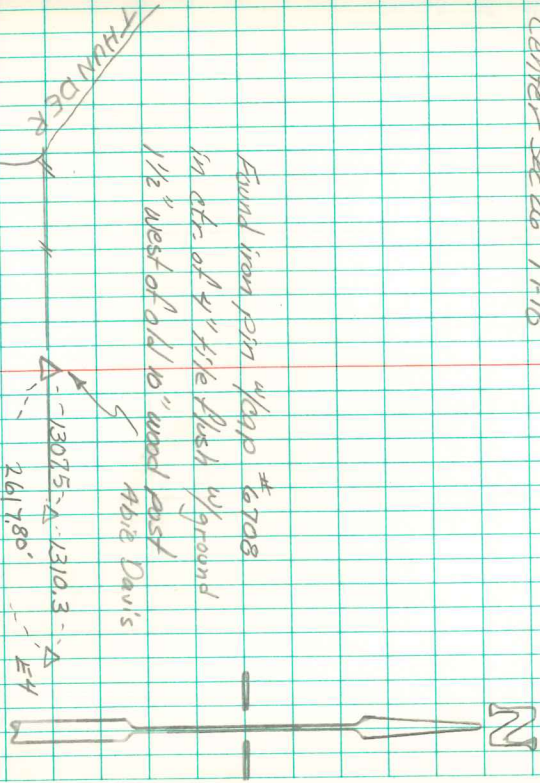 Center Sec 26
N
Found iron pin w/cap #6708
in ctr. of 4" tile flush w/ground
1½" west of old 10" wood post
Abie Davis
THUNDER
-1307.5-Δ-1310.3-Δ
2617.80' E4